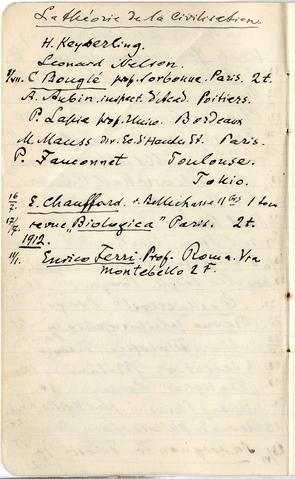 La théorie de la civilisation.
H. Keyserling.
Leonard Nelson.
1/VII. C. Bouglé prof. Sorbonne. Paris. 2t.
A. Aubin, inspect. d'Acad. Poitiers.
P. Lapie prof. Univ. Bordeaux
M. Mauss dir. Ec. d'Hautes Et. Paris.
P. Fauconnet Toulouse.
Tokio.
16/ E. Chauffard r. Bellechasse 11
17/ revue "Biologica" Paris. 2t.
1912.
11/1. Enrico Ferri. Prof. Roma. Via
Montebello 2 F.